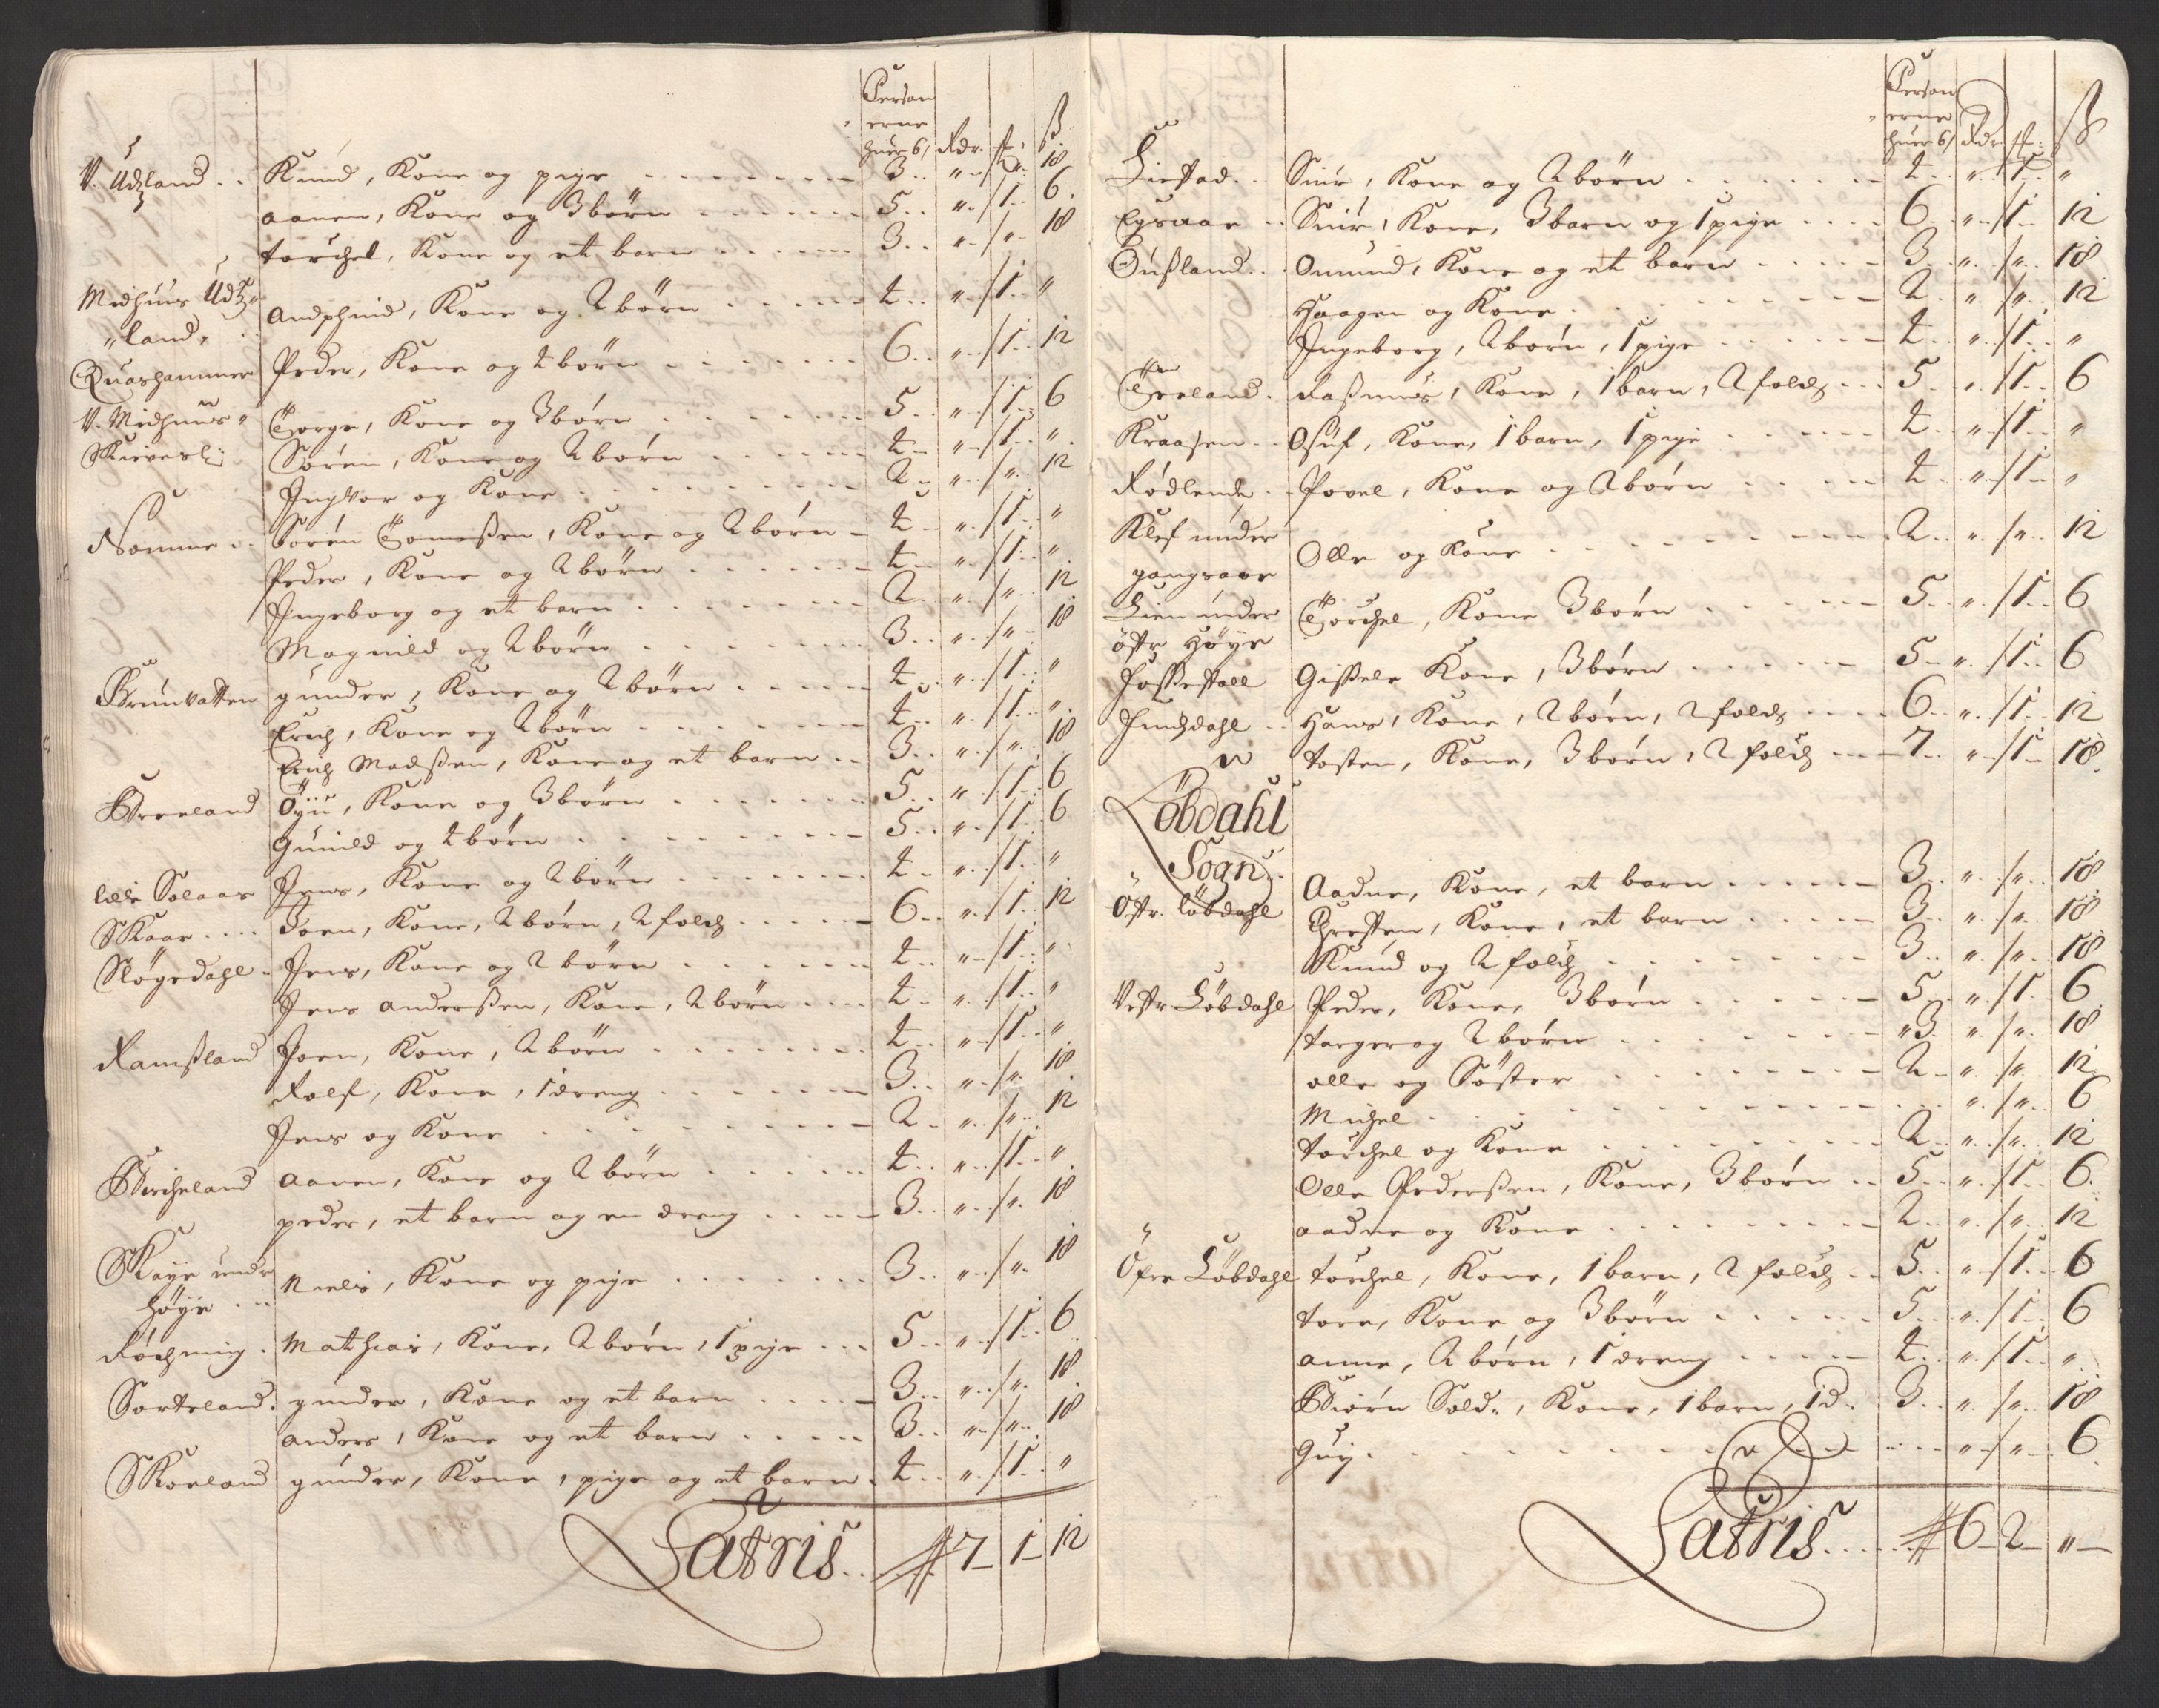 Person
erne
huer 6ß Rdr. ꝟ ß
V. Udtzland .. Knud, Kone og pige 3 .. " .. " .. 18
Aanen, Kone og 3 börn 5 .. " .. 1 .. 6
Torchel, Kone og et barn 3 .. " .. " .. 18
Midhuus Udtz"
"land, Andphind, Kone og 2 börn 4 .. " .. 1 .. "
Quashammer Peder, Kone og 4 börn 6 .. " .. 1 .. 12
V. Midhuus" Børge, Kone og 3 börn 5 .. " .. 1 .. 6
Skieveli Sören, Kone og 2 börn 4 .. " .. 1 .. "
Ingvor og Kone 2 .. " .. " .. 12
Nomme .. Sörén Tomeßen, Kone og 2 börn 4 .. " .. 1 .. "
Peder, Kone og 2 börn 4 .. " .. 1 .. "
Ingeborg og et barn 2 .. " .. " .. 12
Magnild og 2 börn 3 .. " .. " .. 18
Brunvatten gunder, Kone og 2 börn 4 .. " .. 1 .. "
Erich, Kone og 2 börn 4 .. " .. 1 .. "
Erich Madßen, Kone og et barn .. 3 .. " .. " .. 18
Breeland Öyu, Kone og 3 börn 5 .. " .. 1 .. 6
Gunild og 4 börn 5 .. " .. 1 .. 6
lille Solaas Jens, Kone og 2 börn 4 .. " .. 1 .. "
Skaar .... Joen, Kone, 2 börn, 2 folch 6 .. " .. 1 .. 12
Slögedahl .. Jens, Kone og 2 börn 4 .. " .. 1 .. "
Jens Anderßen, Kone, 2 börn 4 .. " .. 1 .. "
Ramßland Joen, Kone, 2 börn 4 .. " .. 1 .. "
Rolf, Kone, 1 dreng 3 .. " .. " .. 18
Jens og Kone 2 .. " .. " .. 12
Bircheland Aanen, Kone og 2 börn 4 .. " .. 1 .. "
peder, et barn og en dreng 3 .. " .. " .. 18
Skaye under
höye .. Niels, Kone og pige 3 .. " .. " .. 18
Röchning . Mathias, Kone, 2 börn, 1 pige ... 5 .. " .. 1 .. 6
Sorteland . gunder, Kone og et barn 3 .. " .. " .. 18
Anders, Kone og et barn 3 .. " .. " .. 18
Skorland gunder, Kone, pige og et barn . 4 .. " .. 1 .. "
Latris .. 7 – 1 – 12
Person
erne
huer 6ß Rdr ꝟ ß
Liestad .. Siur, Kone og 2 börn 4 .. " .. 1 .. "
Egeaae .. Siur, Kone, 3 barn og 1 pige 6 .. " .. 1 .. 12
Øußland .. Omund, Kone og et barn 3 .. " .. " .. 18
Haagen og Kone 2 .. " .. " .. 12
Ingeborg, 2 börn, 1 pige 4 .. " .. 1 .. "
Treland . Raßmus, Kone, 1 barn, 2 folch 5 .. " .. 1 .. 6
Kraagen .. Osuf, Kone, 1 barn, 1 pige 4 .. " .. 1 .. "
Rødlende .. Povel, Kone og 2 börn 4 .. " .. 1 .. "
Klef under
gangsaae Olle og Kone 2 .. " .. " .. 12
Lien under
östre Höye Torchel, Kone 3 börn 5 .. " .. 1 .. 6
Joßestoll Gißele Kone, 3 börn 5 .. " .. 1 .. 6
Hundzdahl .. Hans, Kone, 2 börn, 2 folch 6 .. " .. 1 .. 12
Tosten, Kone, 3 börn, 2 folch 7 .. " .. 1 .. 18
Löbdahl
Sogn
Östr. löbdahl Aadne, Kone, et barn 3 .. " .. " .. 18
Chresten, Kone, et barn 3 .. " .. " .. 18
Knud og 2 folch 3 .. " .. " .. 18
Vestr Löbdahl Peder, Kone, 3 börn 5 .. " .. 1 .. 6
Targer og 2 börn 3 .. " .. " .. 18
olle og Söster 2 .. " .. " .. 12
Michel " .. " .. 6
Torchel og Kone 2 .. " .. " .. 12
Olle Pederßen, Kone, 3 börn .. 5 .. " .. 1 .. 6
aadne og Kone 2 .. " .. " .. 12
Öfre Löbdahl Torchel, Kone, 1 barn, 2 folch .. 5 .. " .. 1 .. 6
Tore, Kone og 3 börn 5 .. " .. 1 .. 6
anne, 2 börn, 1 dreng 4 .. " .. 1 .. "
Biörn Sold:, Kone, 1 barn, 1 d. 3 .. " .. " .. 18
Guy " .. " .. 6
Latris .... 6 – 2 – " –